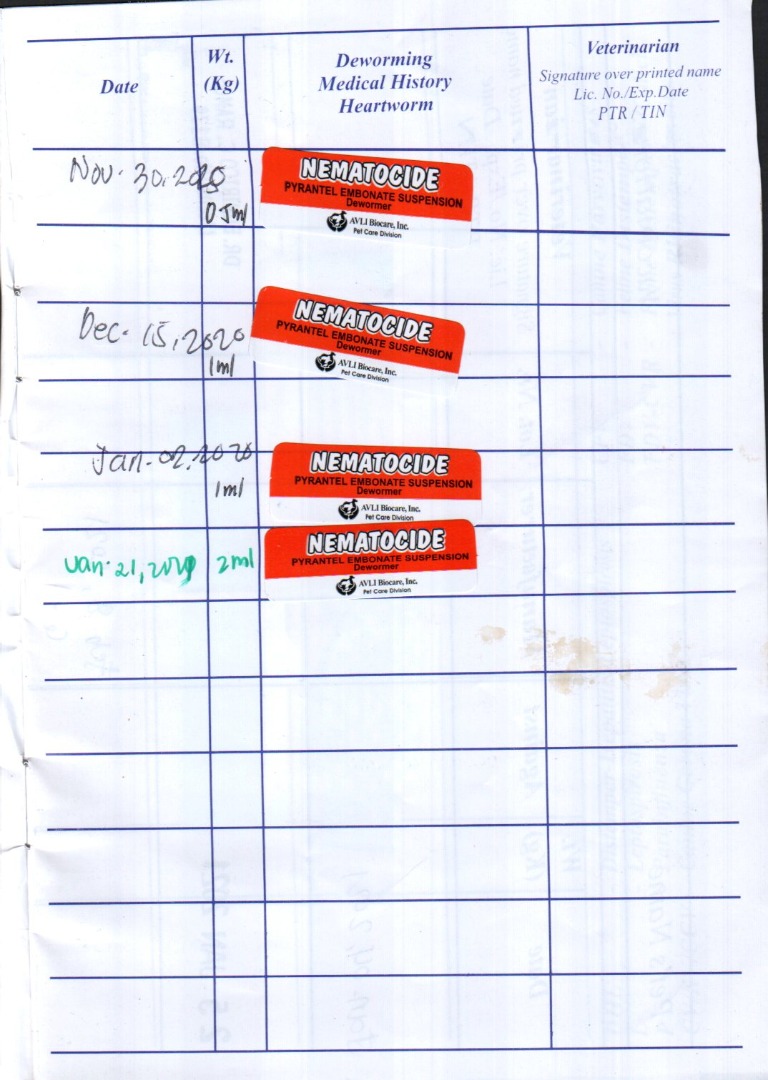 Date
Wt.
(Kg)
Deworming
Medical History
Heartworm
Veterinarian
Signature over printed name
Lic. No./Exp.Date
PTR / TIN
Nov. 30, 2020
NEMATOCIDE
PYRANTEL EMBONATE SUSPENSION
Dewormer
AVLI Biocare, Inc.
Pet Care Division
Dec. 15, 2020
1ml
NEMATOCIDE
PYRANTEL EMBONATE SUSPENSION
Dewormer
AVLI Biocare, Inc.
Pet Care Division
Jan. 02, 2020
1ml
NEMATOCIDE
PYRANTEL EMBONATE SUSPENSION
Dewormer
AVLI Biocare, Inc.
Pet Care Division
Jan. 21, 2ml
NEMATOCIDE
PYRANTEL EMBONATE SUSPENSION
Dewormer
AVLI Biocare, Inc.
Pet Care Division